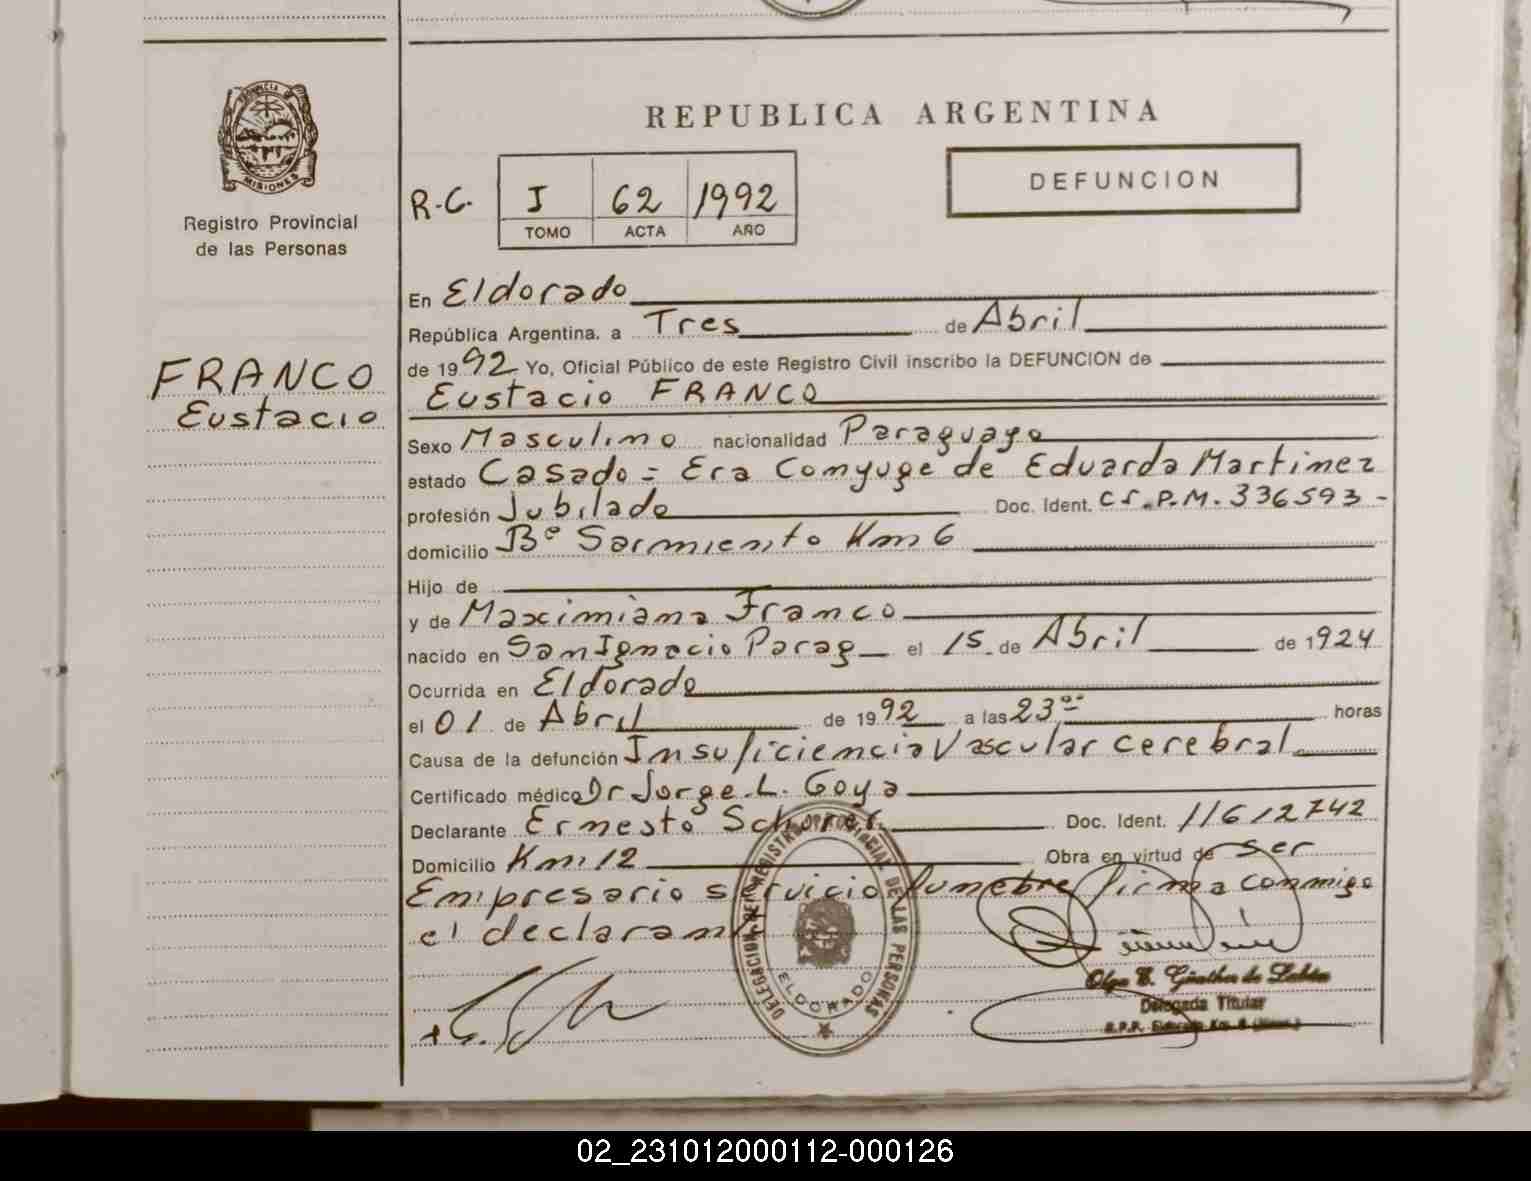 PROVINCIA DE
MISIONES
Registro Provincial
de las Personas
FRANCO
Eustacio
REPUBLICA ARGENTINA
R.C. I 62 1992
TOMO ACTA AÑO
DEFUNCION
En Eldorado
República Argentina. a Tres de Abril
de 1992 Yo, Oficial Público de este Registro Civil inscribo la DEFUNCION de
Eustacio FRANCO
Sexo Masculino nacionalidad Paraguayo
estado Casado = Era Comyuge de Eduarda Martinez
profesión Jubilado Doc. Ident. C.I.P.M. 336593-
domicilio Bº Sarmiento Km 6
Hijo de
y de Maximiana Franco
nacido en San Ignacio Parag el 15 de Abril de 1924
Ocurrida en Eldorado
el 01 de Abril de 1992 a las 23ºº horas
Causa de la defunción Insuficiencia Vascular cerebral
Certificado médico Dr Jorge L. Goya
Declarante Ernesto Schorer Doc. Ident. 11612742
Domicilio Km 12 Obra en virtud de ser
Empresario servicio funebre firma conmigo
el declarante
DELEGACION DEL REGISTRO PROVINCIAL DE LAS PERSONAS
ELDORADO
Olga E. Günther de
Delegada Titular
R.P.P. Eldorado Km.
02_231012000112-000126